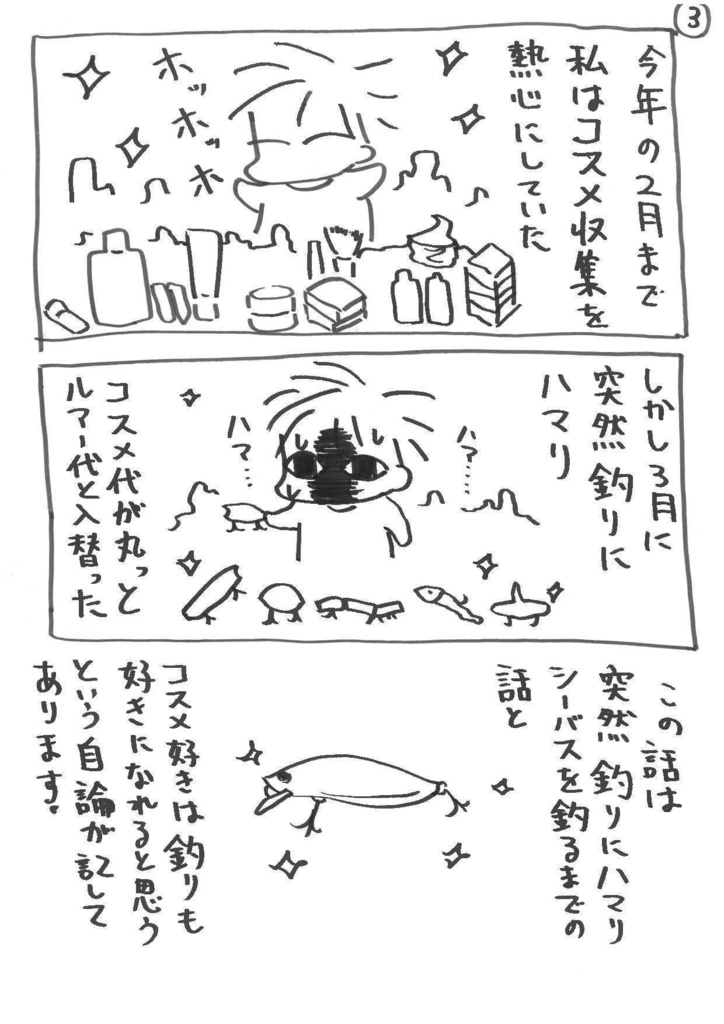 3
今年の2月まで
私はコスメ収集を
熱心にしていた
ホッ
ホッ
ホ
しかし3月に
突然釣りに
ハマり
ハマ…
ハマ…
コスメ代が丸っと
ルアー代と入替った
この話は
突然釣りにハマり
シーバスを釣るまでの
話と
コスメ好きは釣りも
好きになれると思う
という自論が記して
あります。